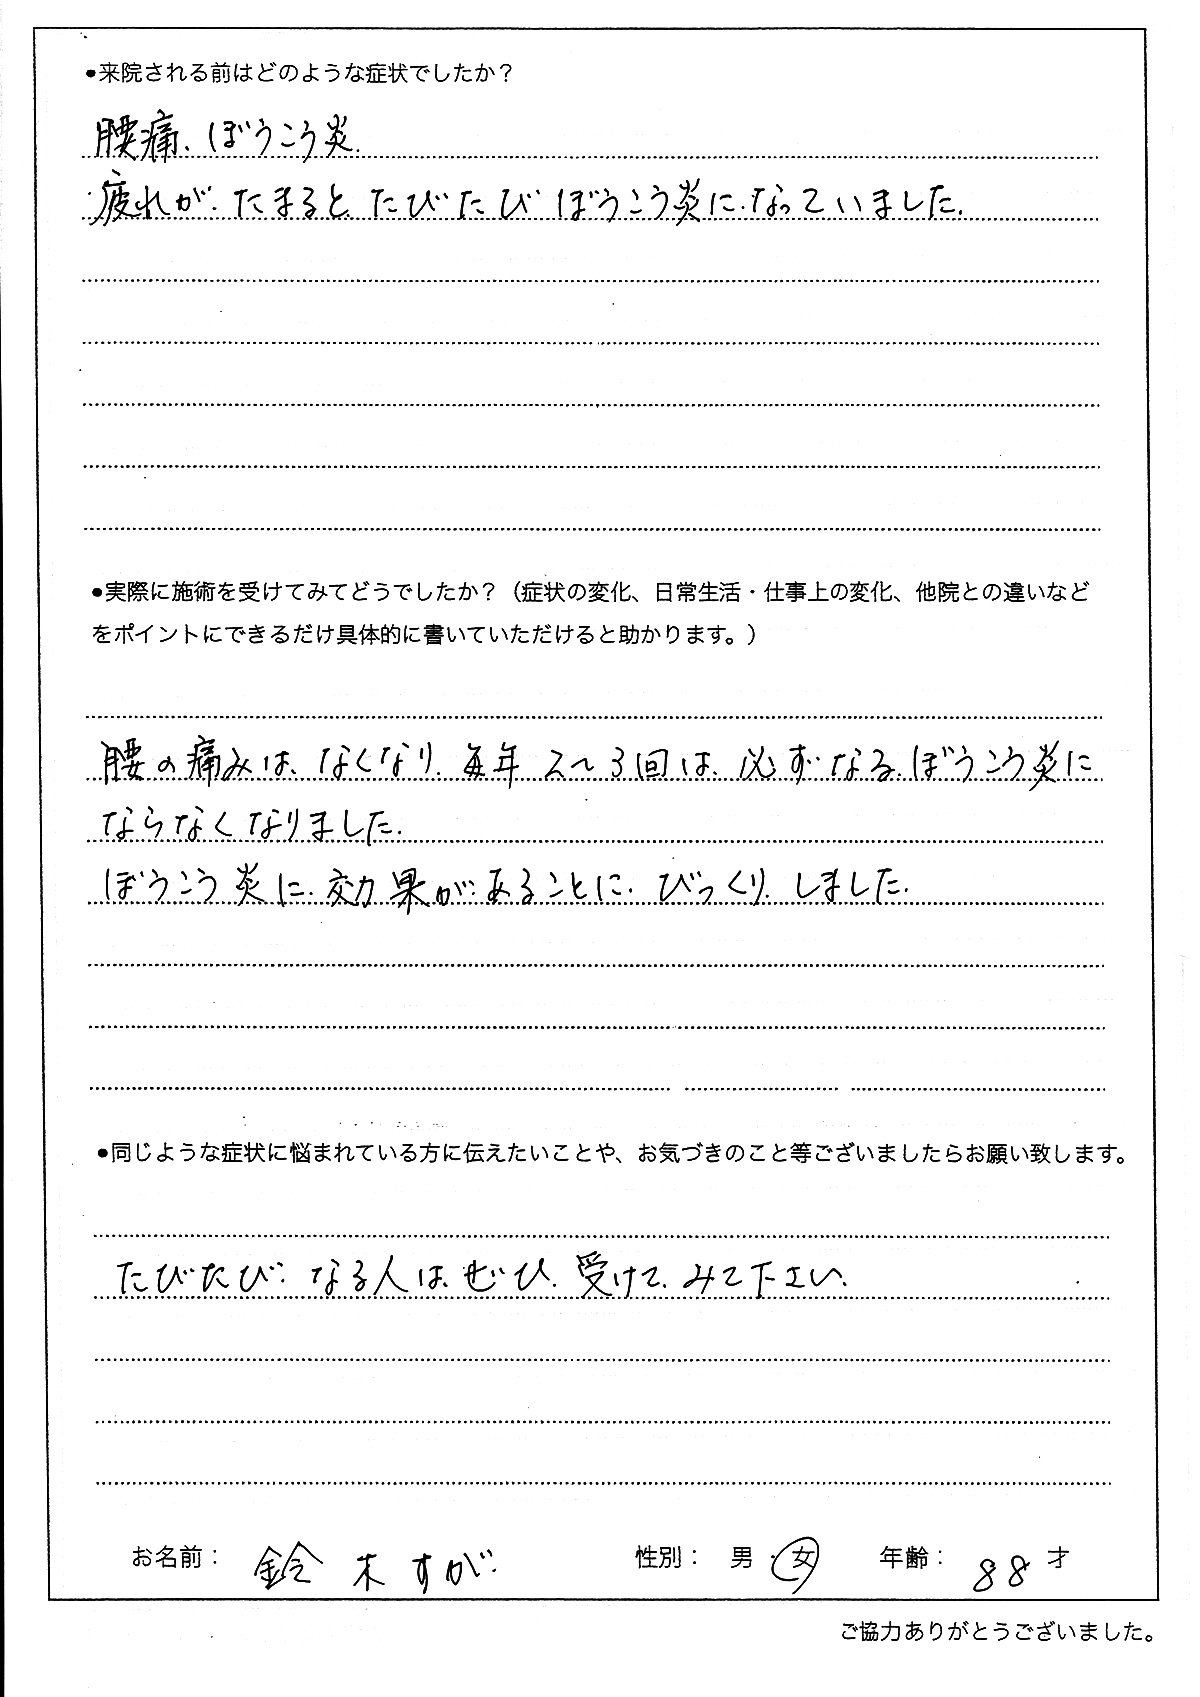 ●来院される前はどのような症状でしたか？
腰痛、ぼうこう炎.
疲れが、たまると、たびたび ぼうこう炎に、なっていました.
●実際に施術を受けてみてどうでしたか？（症状の変化、日常生活・仕事上の変化、他院との違いなど
をポイントにできるだけ具体的に書いていただけると助かります。）
腰の痛みは、なくなり、毎年 2〜3回は、必ず なる、ぼうこう炎に
ならなくなりました.
ぼうこう炎に、効果が、あることに、びっくり しました.
●同じような症状に悩まれている方に伝えたいことや、お気づきのこと等ございましたらお願い致します。
たびたび、なる人は、ぜひ、受けて、みて下さい.
お名前： 鈴木すが 性別： 男 ・ 女 年齢： 88 才
ご協力ありがとうございました。